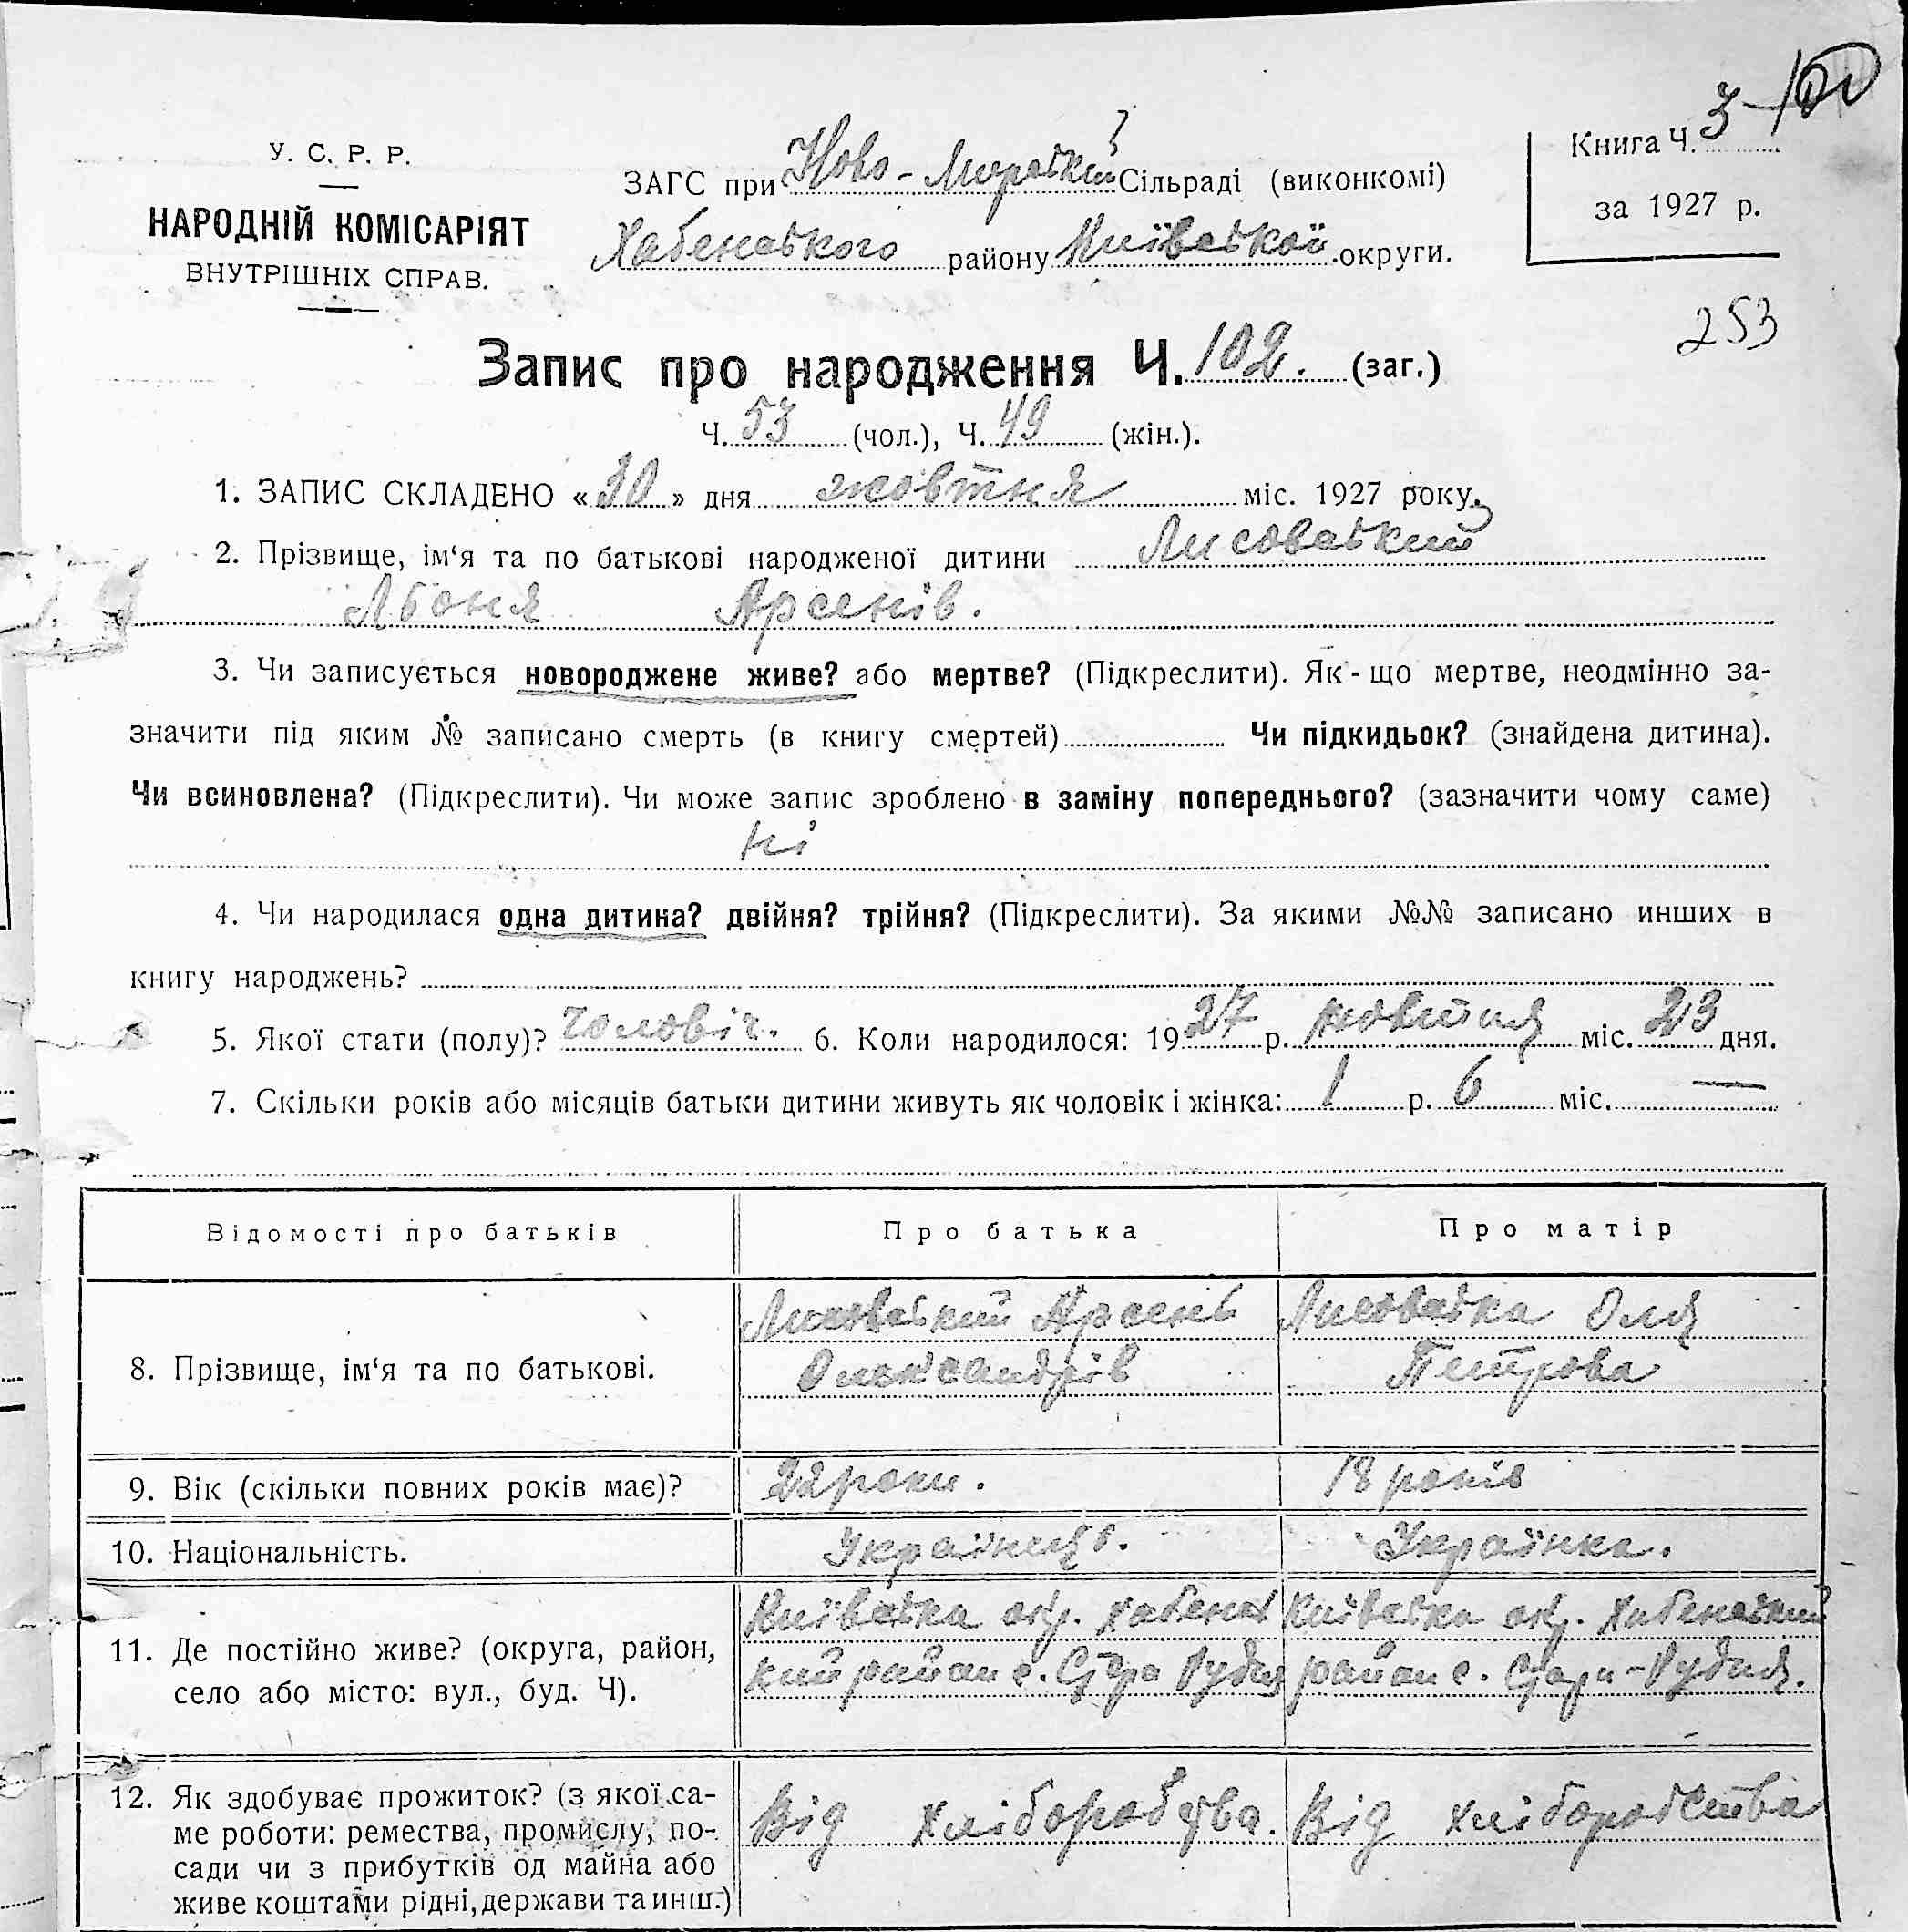 Книга Ч. 3
за 1927 р.
253
У. С. Р. Р.
НАРОДНІЙ КОМІСАРІЯТ
ВНУТРІШНІХ СПРАВ.
ЗАГС при Ново - Мирський Сільраді (виконкомі)
Хабенського району Київської округи.
Запис про народження Ч. 102. (заг.)
Ч. 53 (чол.), Ч. 49 (жін.).
1. ЗАПИС СКЛАДЕНО «30» дня жовтня міс. 1927 року.
2. Прізвище, ім‘я та по батькові народженої дитини Лисовський
Арсенів.
3. Чи записується новороджене живе? або мертве? (Підкреслити). Як-що мертве, неодмінно за-
значити під яким № записано смерть (в книгу смертей) Чи підкидьок? (знайдена дитина).
Чи всиновлена? (Підкреслити). Чи може запис зроблено в заміну попереднього? (зазначити чому саме)
ні
4. Чи народилася одна дитина? двійня? трійня? (Підкреслити). За якими №№ записано инших в
книгу народжень?
5. Якої стати (полу)? чоловіч. 6. Коли народилося: 1927 р. жовтня міс. 23 дня.
7. Скільки років або місяців батьки дитини живуть як чоловік і жінка: 1 р. 6 міс. —
Відомості про батьків Про батька Про матір
8. Прізвище, ім‘я та по батькові.
Лисовський Арсень
Олександрів
Лисовська Оля
Петрова
9. Вік (скільки повних років має)? 22 роки. 18 років
10. Національність. Українець. Українка.
11. Де постійно живе? (округа, район,
село або місто: вул., буд. Ч).
Київська окр. Хабенсь
кий район с. Стара Рудня
Київська окр. Хабенський
район с. Стара-Рудня.
12. Як здобуває прожиток? (з якої са-
ме роботи: ремества, промислу, по-
сади чи з прибутків од майна або
живе коштами рідні, держави та инш.)
Від хліборобства.
Від хліборобства